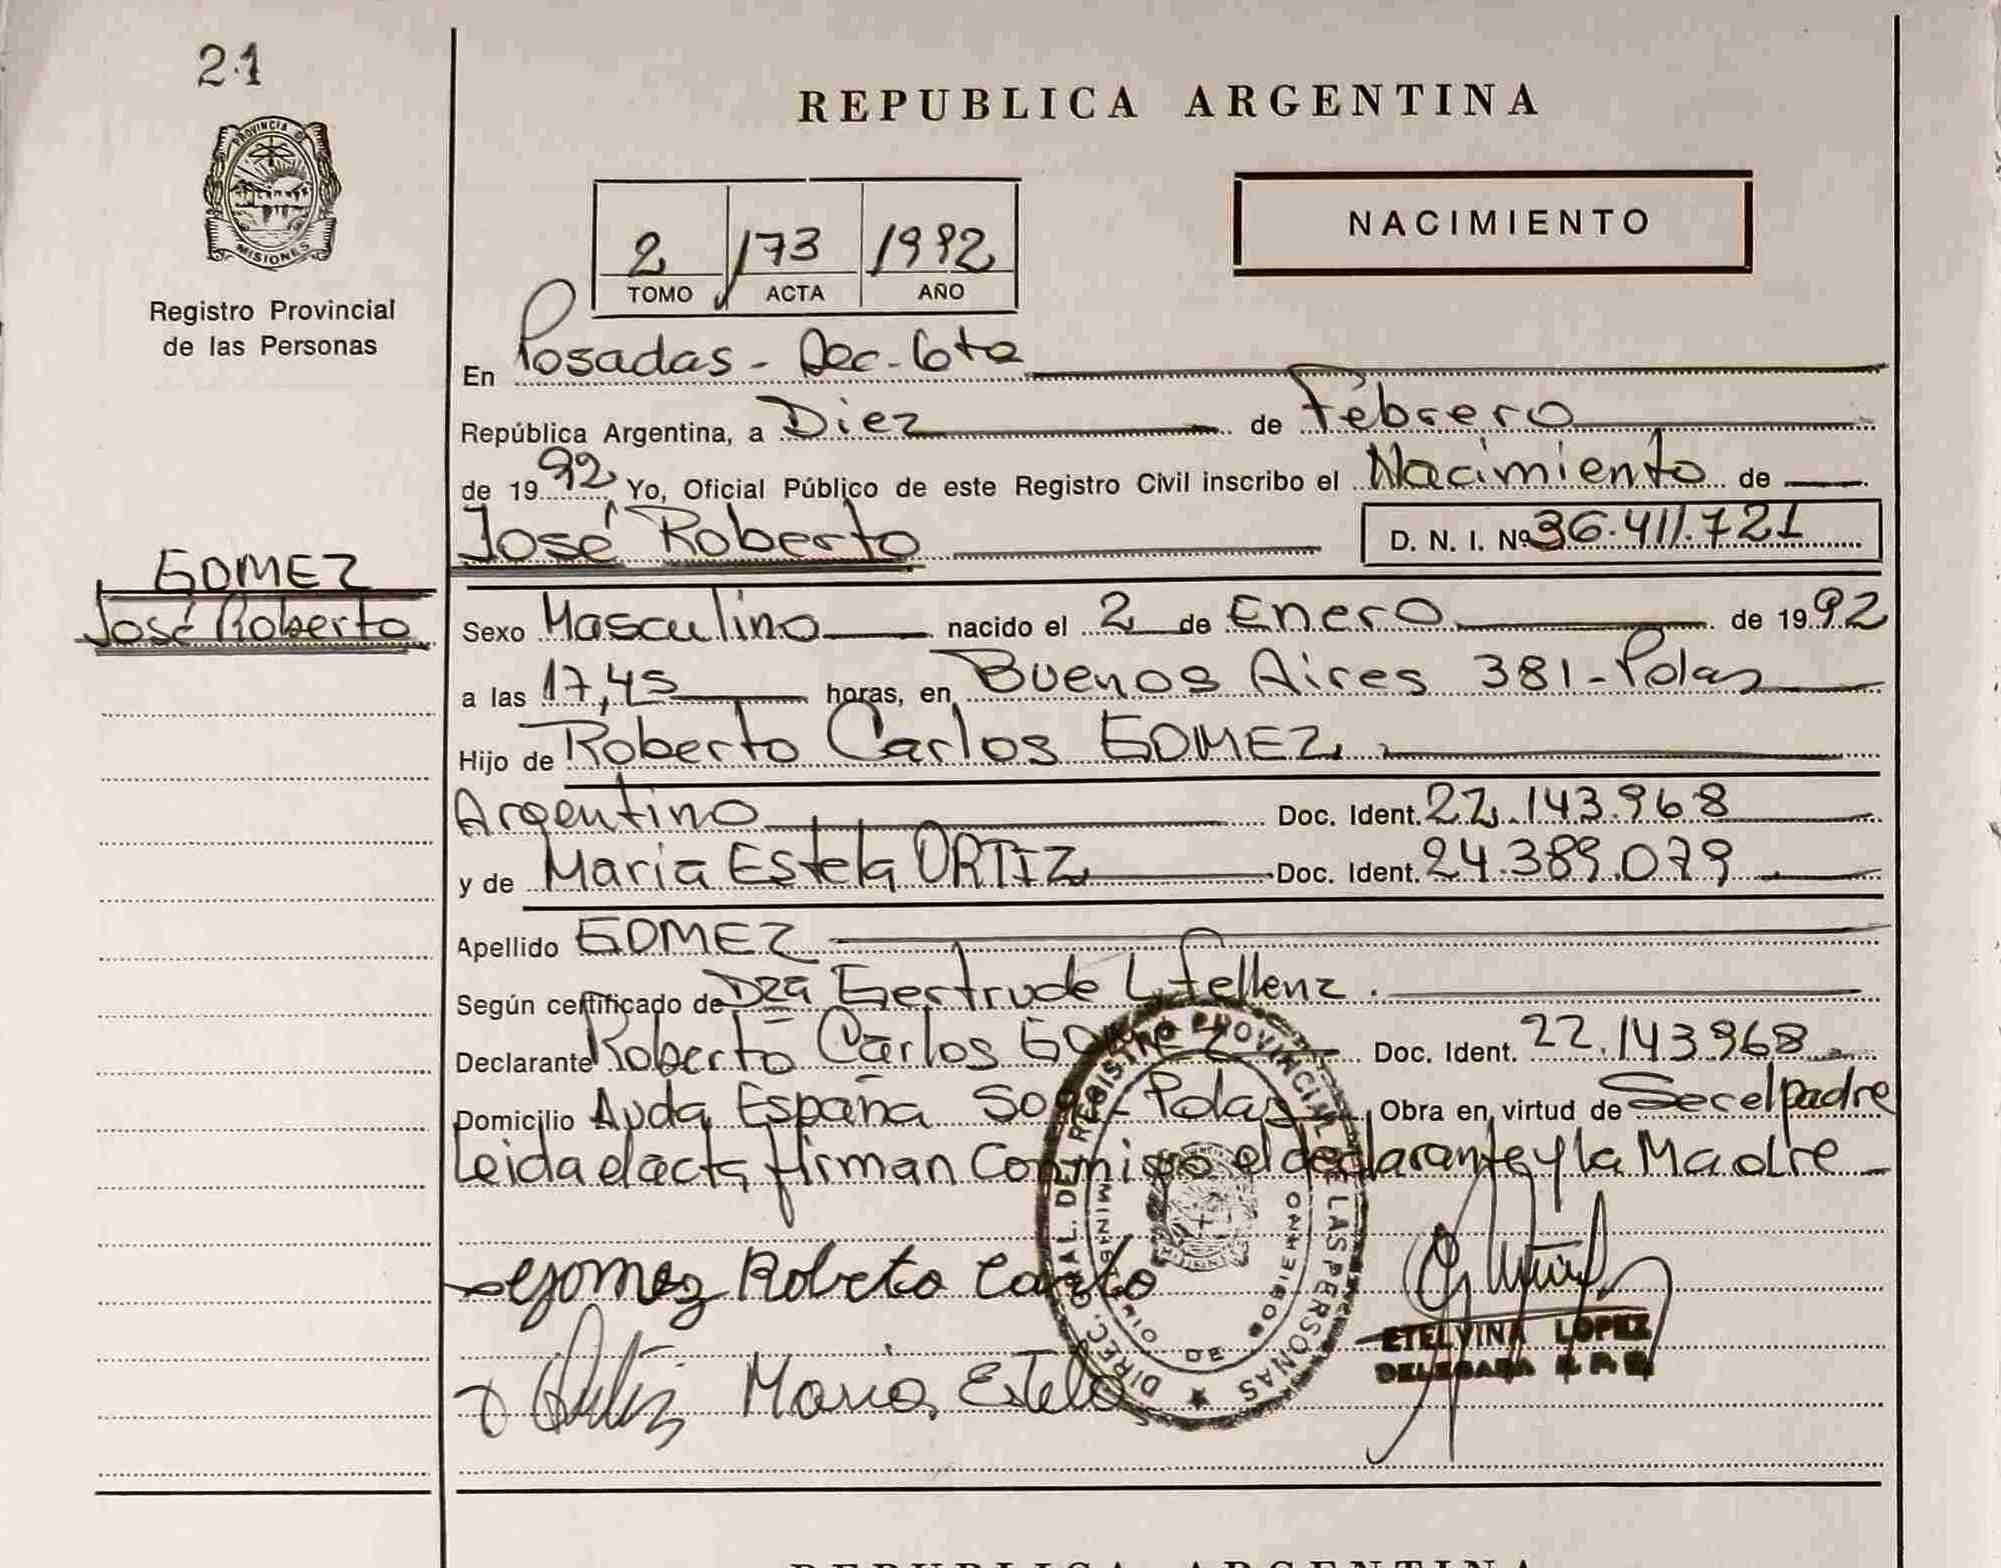 21
PROVINCIA DE
MISIONES
Registro Provincial
de las Personas
GOMEZ
José Roberto
REPUBLICA ARGENTINA
NACIMIENTO
2 173 1992
TOMO ACTA AÑO
En Posadas - Sec. 6ta
República Argentina, a Diez de Febrero
de 1992 Yo, Oficial Público de este Registro Civil inscribo el Nacimiento de
José Roberto D. N. I. Nº 36.411.721
Sexo Masculino nacido el 2 de Enero de 1992
a las 17,45 horas, en Buenos Aires 381 - Pdas
Hijo de Roberto Carlos GOMEZ
Argentino Doc. Ident. 22.143.968
y de Maria Estela ORTIZ Doc. Ident. 24.389.079
Apellido GOMEZ
Según certificado de Dra Gertrude L. Fellenz.
Declarante Roberto Carlos GOMEZ Doc. Ident. 22.143.968
Domicilio Avda España Pdas Obra en virtud de Ser el padre
Leida el acta firman Conmigo el declarante y la Madre
Gomez Roberto Carlo
Ortiz Maria Estela
DIREC. GRAL. DEL REGISTRO PROVINCIAL DE LAS PERSONAS
MINISTERIO DE GOBIERNO
ETELVINA LOPEZ
DELEGADA
REPUBLICA ARGENTINA